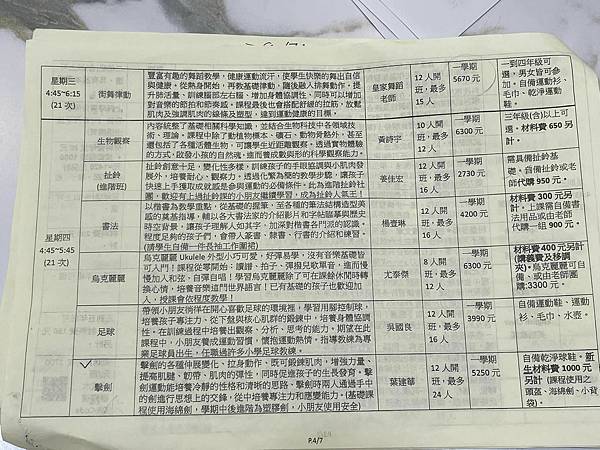 星期三
4:45~6:15
(21 次)
街舞律動
豐富有趣的舞蹈教學,健康運動流汗,使學生快樂的舞出自信
與健康。從熱身開始,再教基礎律動,隨後融入排舞動作。提
升肺活量、訓練腦部左右腦、增加身體協調性、同時可以增加
對音樂的節拍和節奏感。課程最後也會搭配舒緩的拉筋,放鬆
肌肉及強調肌肉的線條及塑型,達到運動健康的目標。
皇家舞蹈
老師
12 人開
班,最多
15 人
一學期
5670 元
一到四年級可
選,男女皆可參
加。自備運動衫、
毛巾、乾淨運動
鞋。
星期四
4:45~5:45
(21 次)
生物觀察
內容統整了基礎相關科學知識,並結合生物科技中各領域技
術、理論。課程中除了動植物標本、礦石、動物骨骼外,甚至
還包括了各種活體生物,可讓學生近距離觀察。透過實物體驗
的方式,啟發小孩的自然魂,進而養成數與形的科學觀察能力。
黃詩宇
10 人開
班,最多
12 人
一學期
6300 元
三年級(含)以上可
選。材料費 650 另
計。
扯鈴
(進階班)
扯鈴創意十足,變化性多樣,訓練孩子的手眼協調與小肌肉發
展外,培養耐心、觀察力,透過化繁為簡的教學步驟,讓孩子
快速上手獲取成就感是參與運動的必備條件。此為進階扯鈴社
團,歡迎有上過扯鈴課的小朋友繼續學習,成為扯鈴人氣王!
姜佳宏
12 人開
班,最多
16 人
一學期
2730 元
需具備扯鈴基
礎。自備扯鈴或老
師代購 950 元。
書法
以楷書為教學重點,從基礎的握筆,至各種的筆法結構造型美
感的奠基指導,輔以各大書法家的介紹影片和字帖臨摹與歷史
時空背景,讓孩子理解人如其字,加深對楷書各門派的認識。
程度足夠的孩子們,會帶入篆書、隸書、行書的介紹和練習。
(請學生自備一件長袖工作圍裙)
楊壹琳
12 人開
班,最多
16 人
一學期
4200 元
材料費 300 元另
計。上課需自備書
法用品或由老師
代購一組 900 元。
烏克麗麗
烏克麗麗 Ukulele 外型小巧可愛,好彈易學,沒有音樂基礎皆
可入門!課程從零開始、讀譜、拍子、彈撥兒歌單音,進而慢
慢加入和弦,自彈自唱!學習烏克麗麗除了可在課餘休閒時轉
換心情,培養音樂這門世界語言!已有基礎的孩子也歡迎加
入,授課會依程度教學!
尤泰傑
8 人開
班,最多
12 人
一學期
6300 元
材料費400 元另計
(講義費及移調
夾)。烏克麗麗可自
備、或由老師基
購:3300 元。
足球
帶領小朋友徜徉在開心喜歡足球的環境裡,學習用腳控制球,
培養孩子專注力。從下盤與核心肌群的鍛鍊中,培養身體協調
性。在訓練過程中培養出觀察、分析、思考的能力,期望在此
課程中,小朋友養成運動習慣,懷抱運動熱情。指導教練為專
業足球員出生,任職過許多小學足球教練。
吳國良
12 人開
班,最多
16 人
一學期
3990 元
自備運動鞋、運動
衫、毛巾、水壺。
擊劍
擊劍的各種伸展變化、拉身動作、既可鍛鍊肌肉,增強力量、
提高肌腱、韌帶、肌肉的彈性,同時促進孩子的生長發育。擊
劍運動能培養冷靜的性格和清晰的思路。擊劍時兩人通過手中
的劍進行思想上的交鋒,從中培養專注力和應變能力。(基礎課
程使用海綿劍,學期中後進階為塑膠劍,小朋友使用安全)
葉建華
12 人開
班,最多
24 人
一學期
5250 元
自備乾淨球鞋。新
生材料費 1000 元
另計 (課程使用之
頭盔、海綿劍、小背
袋)。
P.4/7